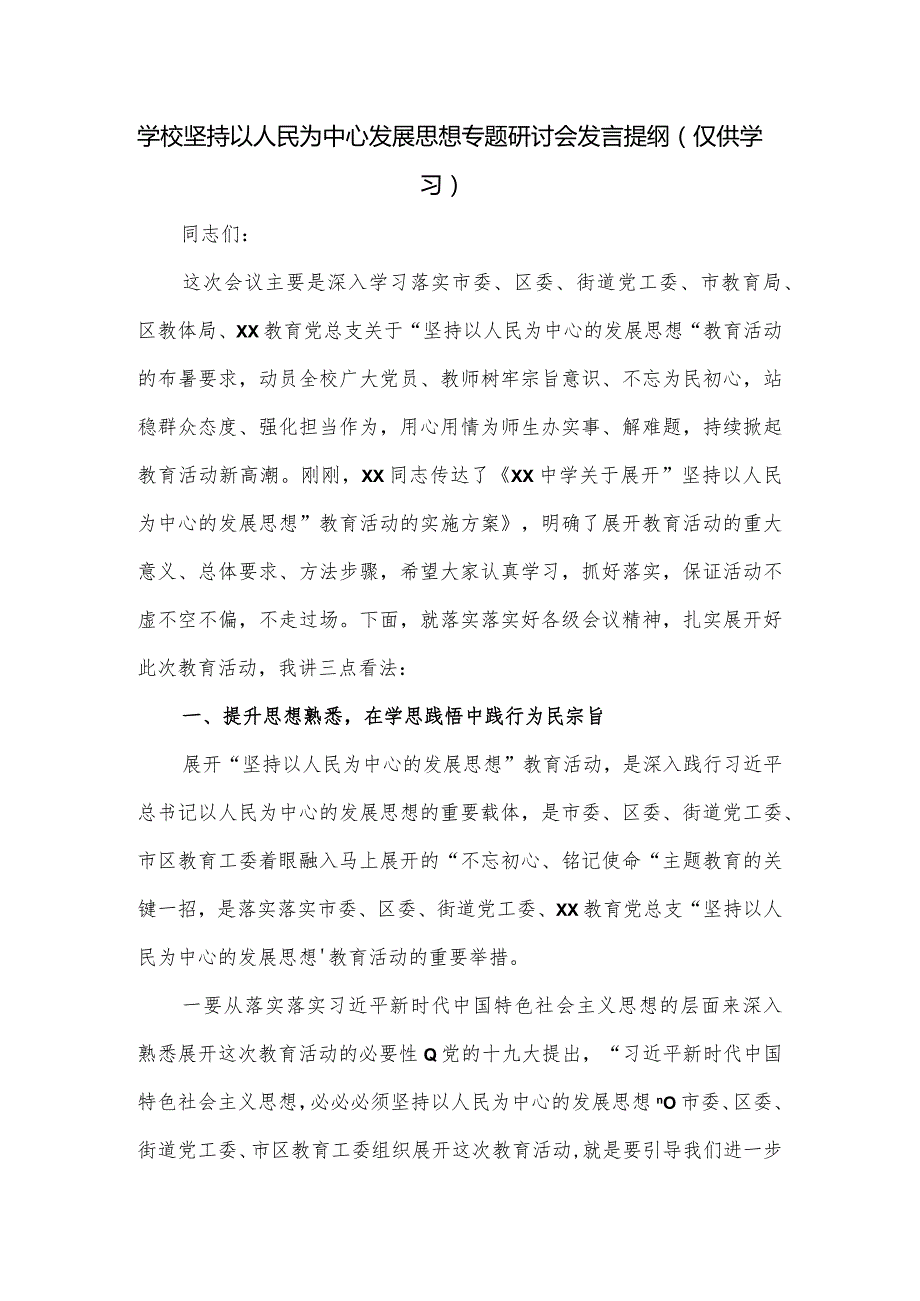 学校坚持以人民为中心发展思想专题研讨会发言提纲（仅供学
习）
同志们：
这次会议主要是深入学习落实市委、区委、街道党工委、市教育局、
区教体局、XX 教育党总支关于“坚持以人民为中心的发展思想“教育活动
的布暑要求，动员全校广大党员、教师树牢宗旨意识、不忘为民初心，站
稳群众态度、强化担当作为，用心用情为师生办实事、解难题，持续掀起
教育活动新高潮。刚刚，XX 同志传达了《XX 中学关于展开”坚持以人民
为中心的发展思想”教育活动的实施方案》，明确了展开教育活动的重大
意义、总体要求、方法步骤，希望大家认真学习，抓好落实，保证活动不
虚不空不偏，不走过场。下面，就落实落实好各级会议精神，扎实展开好
此次教育活动，我讲三点看法：
一、提升思想熟悉，在学思践悟中践行为民宗旨
展开“坚持以人民为中心的发展思想”教育活动，是深入践行习近平
总书记以人民为中心的发展思想的重要载体，是市委、区委、街道党工委、
市区教育工委着眼融入马上展开的“不忘初心、铭记使命“主题教育的关
键一招，是落实落实市委、区委、街道党工委、XX 教育党总支“坚持以人
民为中心的发展思想'教育活动的重要举措。
一要从落实落实习近平新时代中国特色社会主义思想的层面来深入
熟悉展开这次教育活动的必要性 Q 党的十九大提出，“习近平新时代中国
特色社会主义思想,必必必须坚持以人民为中心的发展思想 ⁿO 市委、区委、
街道党工委、市区教育工委组织展开这次教育活动,就是要引导我们进一步